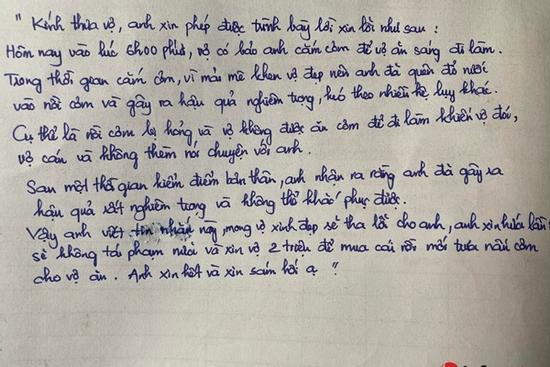 " Kính thưa vợ, anh xin phép được trình bày lời xin lỗi như sau :
Hôm nay vào lúc 6h00 phút, vợ có bảo anh cắm cơm để vợ ăn sáng đi làm.
Trong thời gian cắm cơm, vì mải mê khen vợ đẹp nên anh đã quên đổ nước
vào nồi cơm và gây ra hậu quả nghiêm trọng, kéo theo nhiều hệ lụy khác.
Cụ thể là nồi cơm bị hỏng và vợ không được ăn cơm để đi làm khiến vợ đói,
vợ cáu và không thèm nói chuyện với anh.
Sau một thời gian kiểm điểm bản thân, anh nhận ra rằng anh đã gây ra
hậu quả rất nghiêm trọng và không thể khắc phục được.
Vậy anh viết tin nhắn này, mong vợ xinh đẹp sẽ tha lỗi cho anh, anh xin hứa lần
sẽ không tái phạm nữa và xin vợ 2 triệu để mua cái nồi mới tưa nấu cơm
cho vợ ăn. Anh xin hết và xin sám hối ạ "